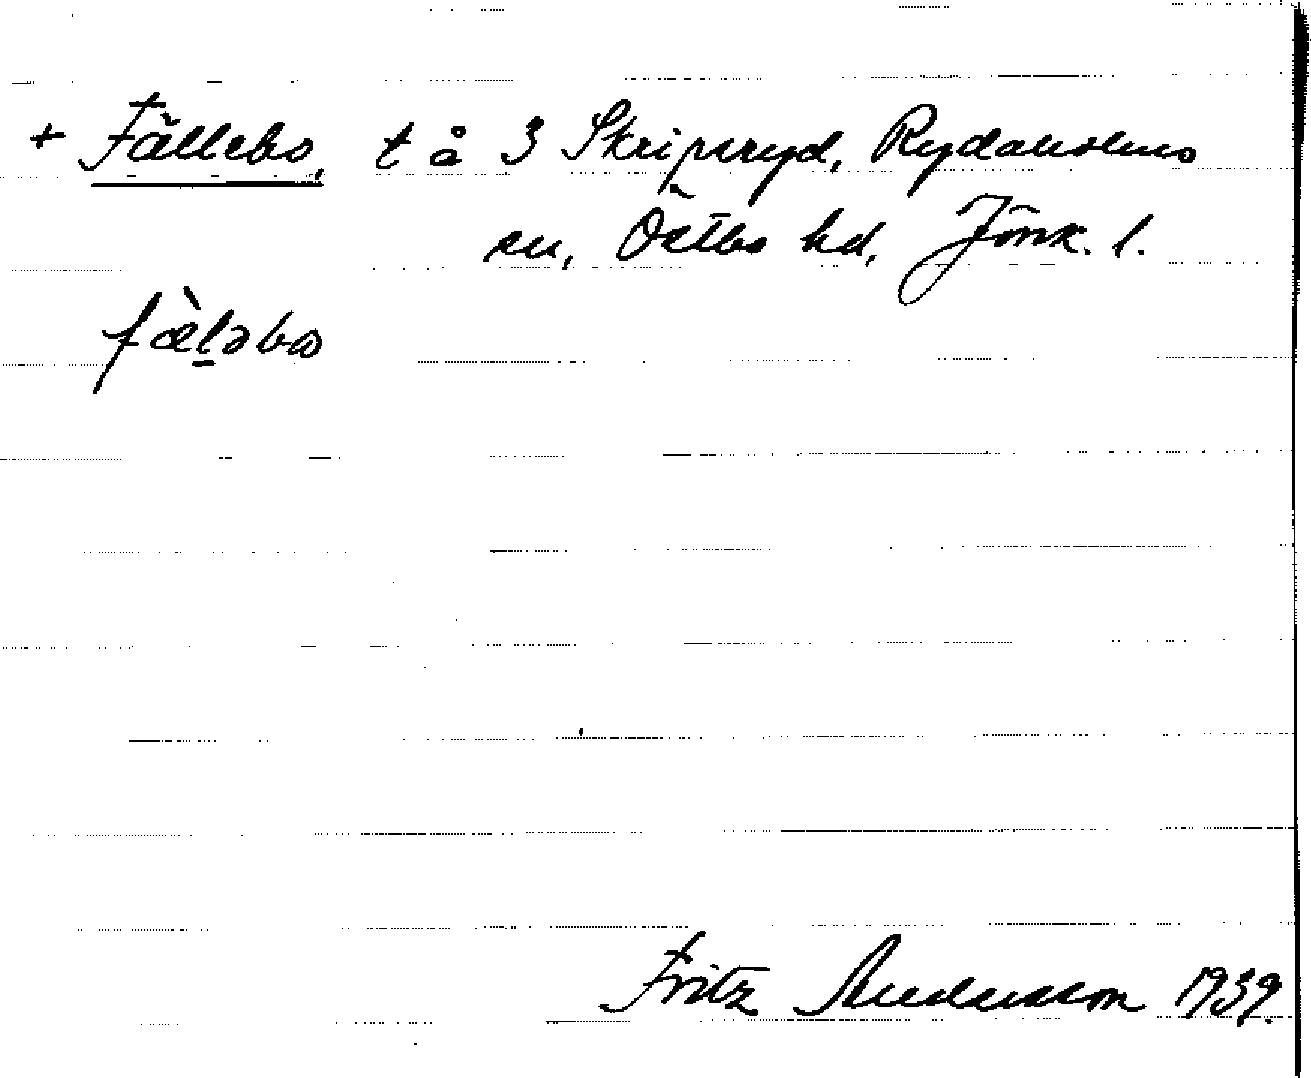 + Fällebo, t å 3 Skripsryd, Rydaholms
sn, Östbo hd, Jönk. l.
fæ̀l̠əbo
Fritz Andersson 1939.